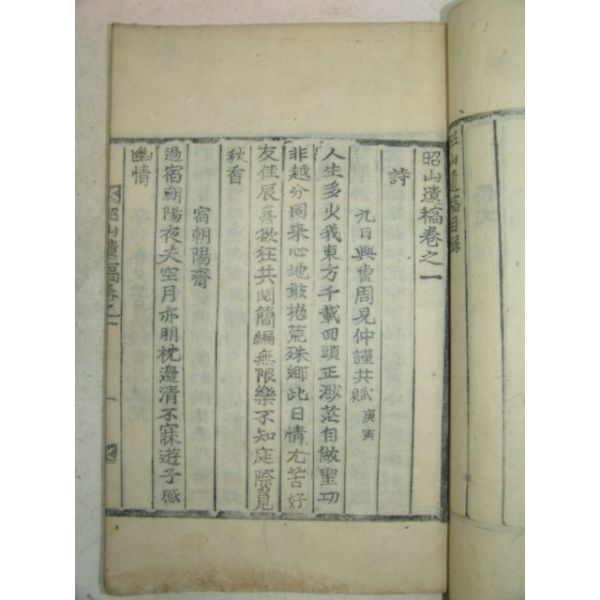 昭山遺稿目錄
昭山遺稿卷之一
詩
九日與曺周見仲謹共賦 庚寅
人生多少我東方千載回頭正渺茫自做聖功
非越分同來心地敢抛荒殊鄉此日情尤苦好
友佳辰喜欲狂共閱簡編無限樂不知庭際覓
秋香
宿朝陽齋
過宿朝陽夜天空月亦明枕邊清不寐遊子感
幽情
昭山遺稿卷之一 一